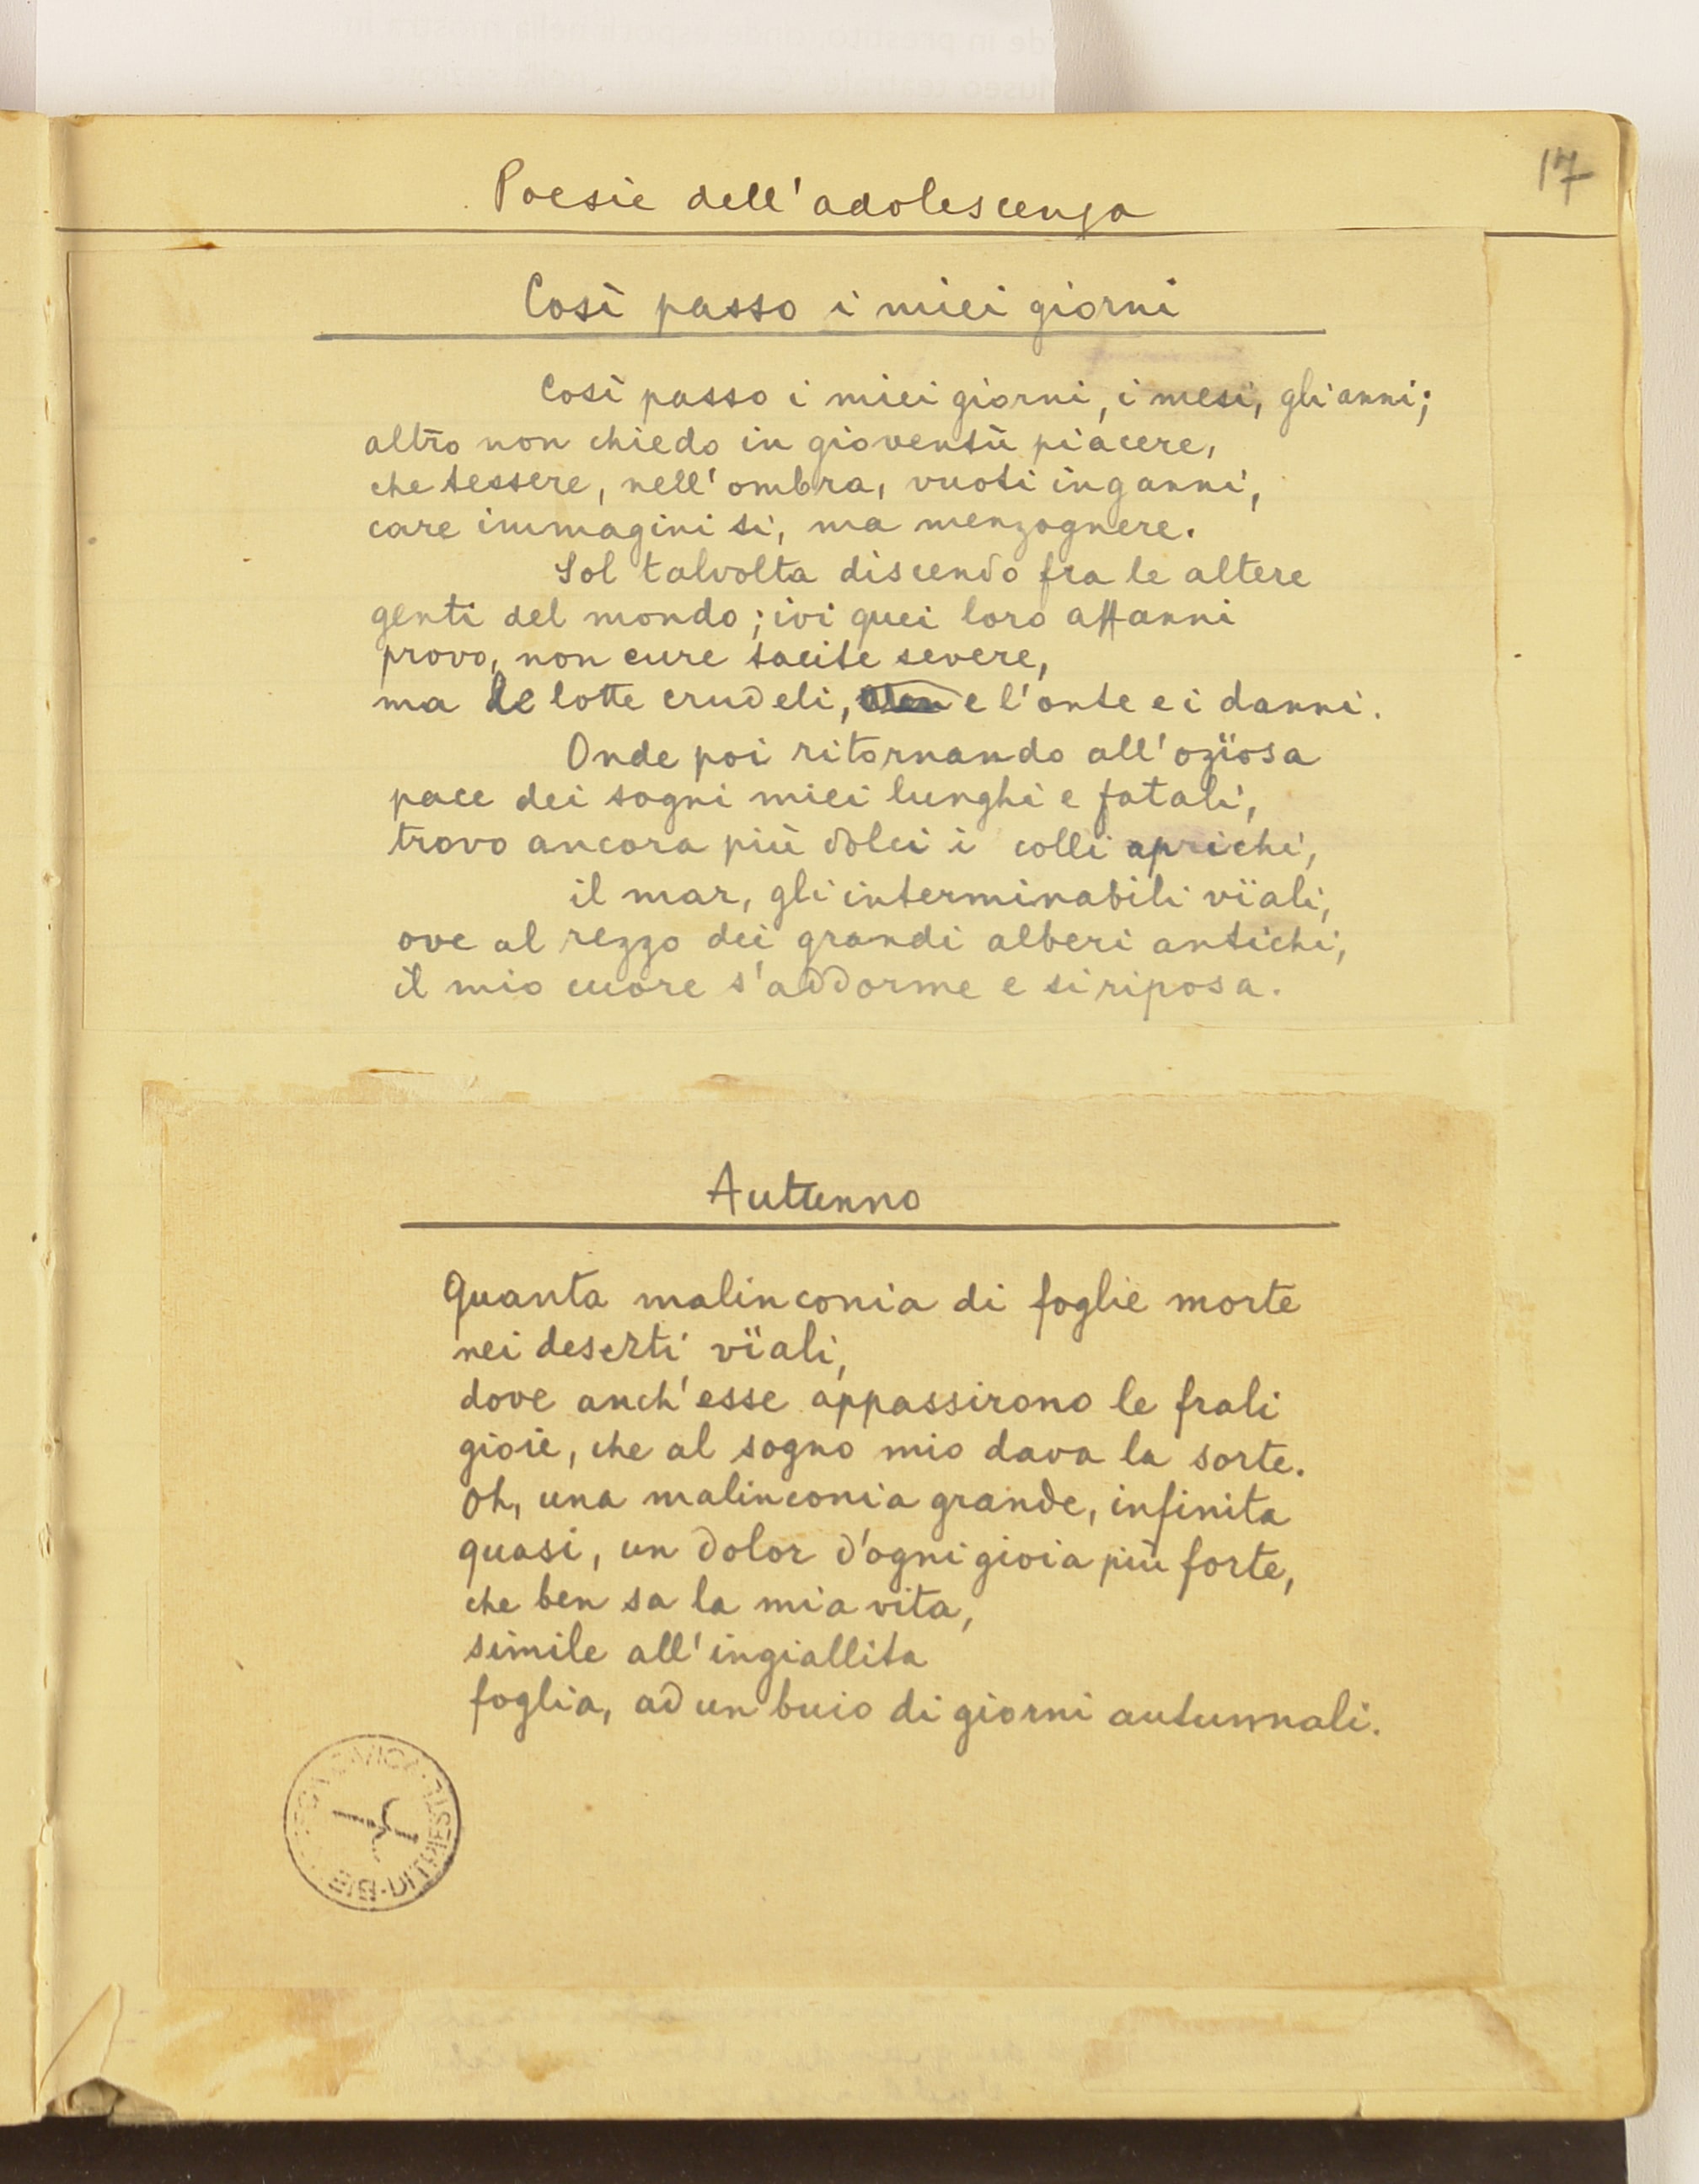 17
Poesie dell'adolescenza
Così passo i miei giorni
Così passo i miei giorni, i mesi, gli anni;
altro non chiedo in gioventù piacere,
che tessere, nell'ombra, vuoti inganni,
care immagini sì, ma menzognere.
Sol talvolta discendo fra le altere
genti del mondo; ivi quei loro affanni
provo, non cure tacite severe,
ma le lotte crudeli, e l'onte e i danni.
Onde poi ritornando all'ozïosa
pace dei sogni miei lunghi e fatali,
trovo ancora più dolci i colli aprichi,
il mar, gli interminabili vïali,
ove al rezzo dei grandi alberi antichi,
il mio cuore s'addorme e si riposa.
Autunno
Quanta malinconia di foglie morte
nei deserti vïali,
dove anch'esse appassirono le frali
gioie, che al sogno mio dava la sorte.
Oh, una malinconia grande, infinita
quasi, un dolor d'ogni gioia più forte,
che ben sa la mia vita,
simile all'ingiallita
foglia, ad un buio di giorni autunnali.
CIVICA
BIB. DI TRIESTE